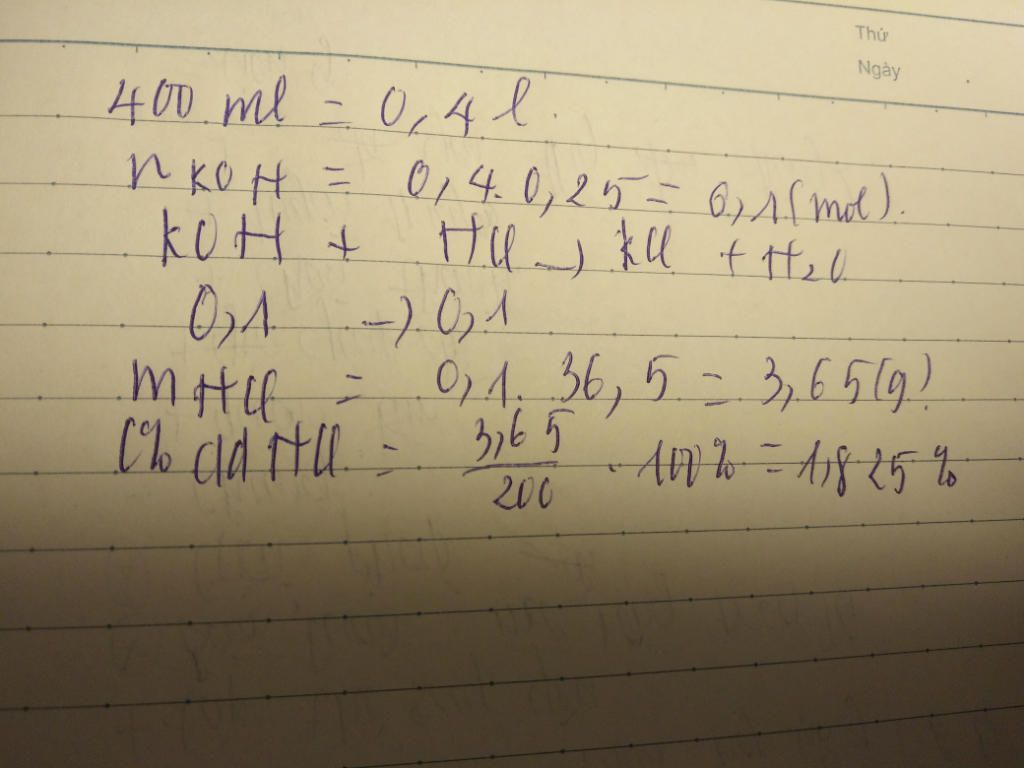 Thứ
Ngày
400 ml = 0,4 l.
n KOH = 0,4. 0,25 = 0,1 (mol).
KOH + HCl → KCl + H2O
0,1 → 0,1
m HCl = 0,1. 36,5 = 3,65 (g)
C% dd HCl = 3,65/200 . 100% = 1,825%